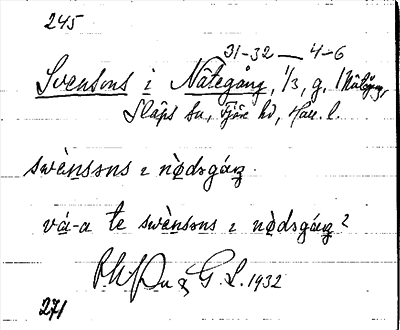 245
31-32 — 4-6
Svensons i Nötegång, 1/3, g. /Nötegång,
Släps sn, Fjäre hd, Hall. l.
swènsɔns ɩ nø̀dəgáŋ.
vá-a te swènsɔns ɩ nø̀dəgáŋ?
& G. L. 1932
271